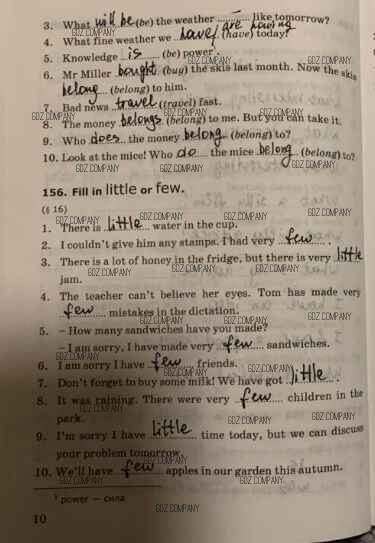 3. What will be (be) the weather ........ like tomorrow?
4. What fine weather we have/are having (have) today!
5. Knowledge is (be) power¹.
6. Mr Miller bought (buy) the skis last month. Now the skis
belong (belong) to him.
7. Bad news travel (travel) fast.
8. The money belongs (belong) to me. But you can take it.
9. Who does the money belong (belong) to?
10. Look at the mice! Who do the mice belong (belong) to?
156. Fill in little or few.
(§ 16)
1. There is little water in the cup.
2. I couldn't give him any stamps. I had very few.
3. There is a lot of honey in the fridge, but there is very little
jam.
4. The teacher can't believe her eyes. Tom has made very
few mistakes in the dictation.
5. – How many sandwiches have you made?
– I am sorry, I have made very few sandwiches.
6. I am sorry I have few friends.
7. Don't forget to buy some milk! We have got little.
8. It was raining. There were very few children in the
park.
9. I'm sorry I have little time today, but we can discuss
your problem tomorrow.
10. We'll have few apples in our garden this autumn.
¹ power — сила
10
GDZ.COMPANY